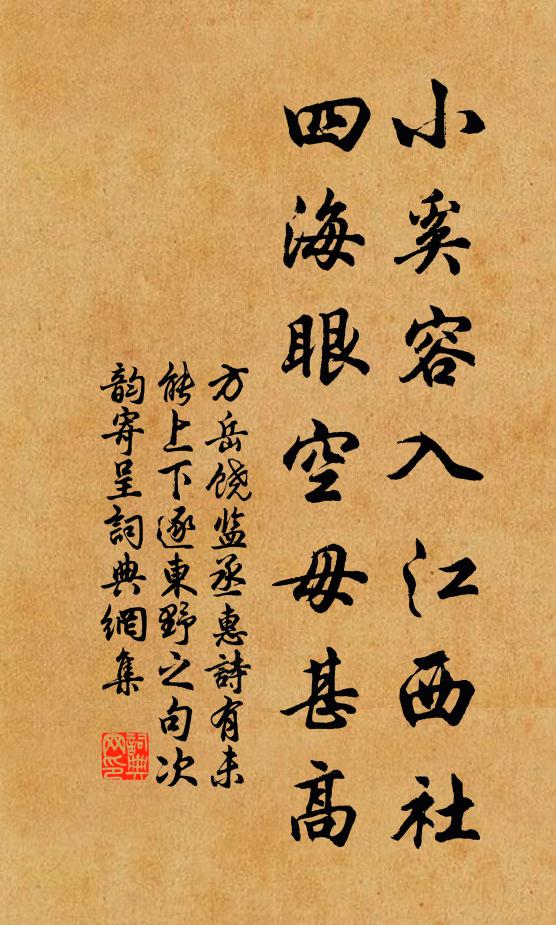 小奚容入江西社
四海眼空毋甚高
方岳饶监丞惠詩有未
能上下逐東野之句次
韵寄呈詞典網集
詞典网印